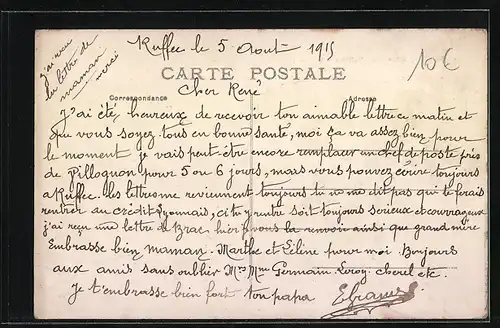 j'ai reçu
la lettre de
maman
merci
Ruffec le 5 Août 1915
10€
CARTE POSTALE
Correspondance
Adresse
Cher René
J'ai été heureux de recevoir ton aimable lettre ce matin et
que vous soyez tous en bonne santé, moi ça va assez bien pour
le moment je vais peut être encore remplacer un chef de poste près
de Villognon pour 5 ou 6 jours, mais vous pouvez écrire toujours
à Ruffec. les lettres me reviennent toujours tu ne me dit pas qui te ferais
rentrer au crédit Lyonnais, si tu y rentre soit toujours serieux et courageux
j'ai reçu une lettre de hier vous la revoir ainsi que grand mère
Embrasse bien maman, Marthe et Céline pour moi. Bonjours
aux amis sans oublier Mr Mme Germain Leroy, cherel etc.
je t'embrasse bien fort ton papa